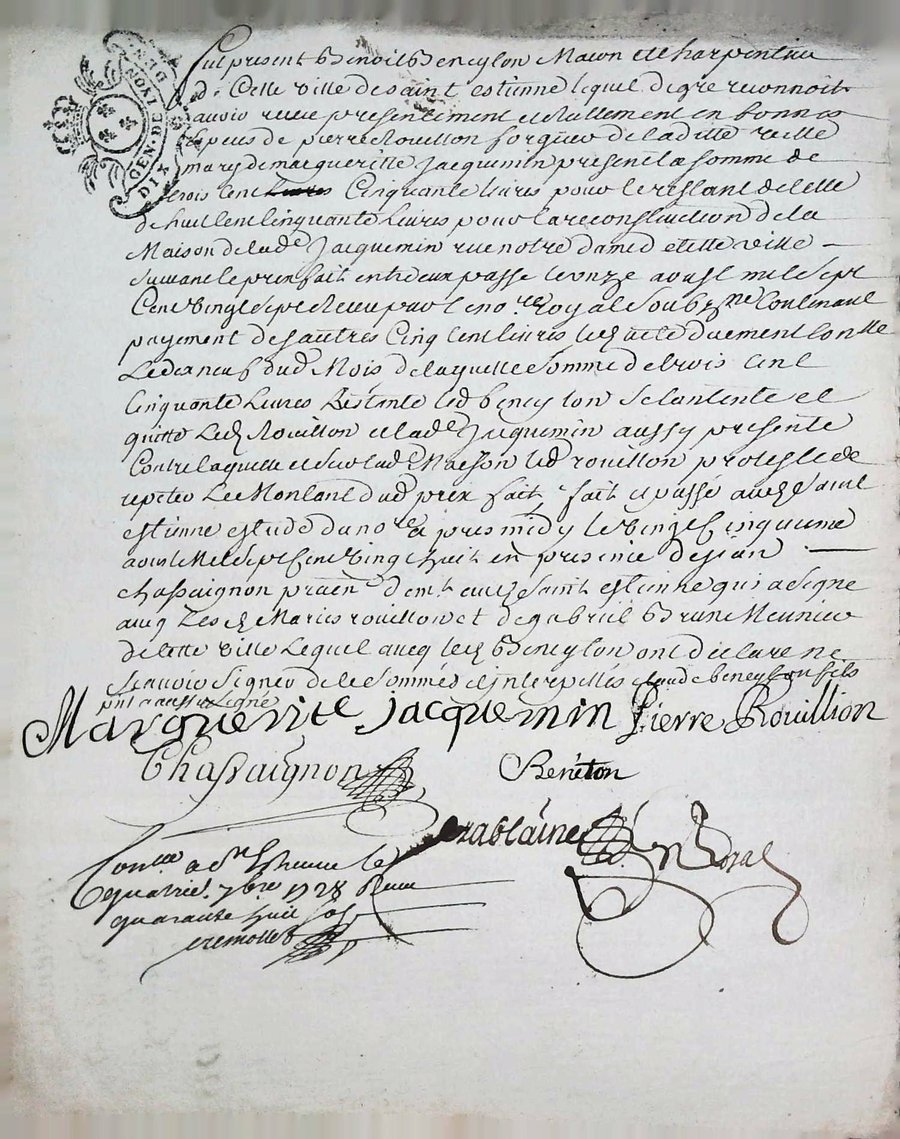 GEN. DE LYON
DIX DEN.
Fut present Benoit Beneyton Macon et Charpentier
de Cette ville de saint estienne lequel de gre reconnoit
avoir receu presentement et reellement en bonnes
Especes de pierre Rouillon forgeur de laditte ville
mary de margueritte Jacquemin present la somme de
trois Cent livres Cinquante livres pour le restant de celle
de huit Cent Cinquante livres pour la reconstruction de la
Maison de lade Jacquemin rue notre dame de cette ville
suivant le prix fait entre eux passe le onze avril mil sept
Cent vingt sept Receu par le nore Royal soubzne Contenant
payement des autres Cinq Cent livres led acte duement Conlle
Le dud Mois de laquelle somme de trois Cent
Cinquante Livres Restante led beneyton se Contente et
quitte Led Rouillon et lade Jacquemin aussy presente
Contre laquelle et sur lade Maison led rouillon proteste de
repeter Le Montant dud prix fait, fait et passé aud saint
estienne estude du nore apres midy le vingt Cinquieme
aoust Mil sept Cent vingt huit en presence de jean
chassaignon praen demt aud saint estienne qui a signe
avec Les d Maries rouillon et de gabriel Brun Meunier
de Cette ville Lequel avecq led Beneyton ont declare ne
scavoir signer de ce sommés et interpellés Claude beneyton fils
present a aussy signé
Marguerite jacquemin Pierre Rouillion
Chassaignon Beneton
nore Royal
Conllé a St Etienne le
quatrie 7bre 1728 Receu
quarante huit sols